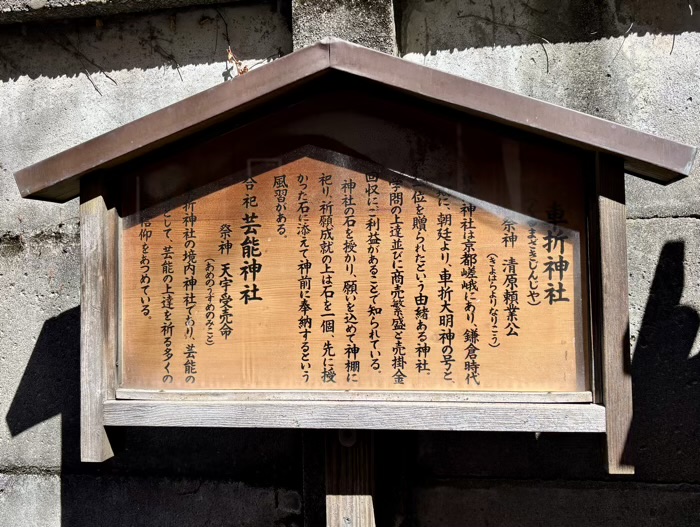 車折神社
まざきじんじゃ)
祭神 清原頼業公
(きよはらよりなりこう)
神社は京都嵯峨にあり、鎌倉時代
に、朝廷より、車折大明神の号と、
位を贈られたという由緒ある神社。
学問の上達並びに商売繁盛と売掛金
回収にご利益があることで知られている。
神社の石を授かり、願いを込めて神棚に
祀り、祈願成就の上は石を一個、先に授
かった石に添えて神前に奉納するという
風習がある。
合祀 芸能神社
祭神 天宇受売命
(あめのうずめのみこと)
折神社の境内神社であり、芸能の
として、芸能の上達を祈る多くの
信仰をあつめている。